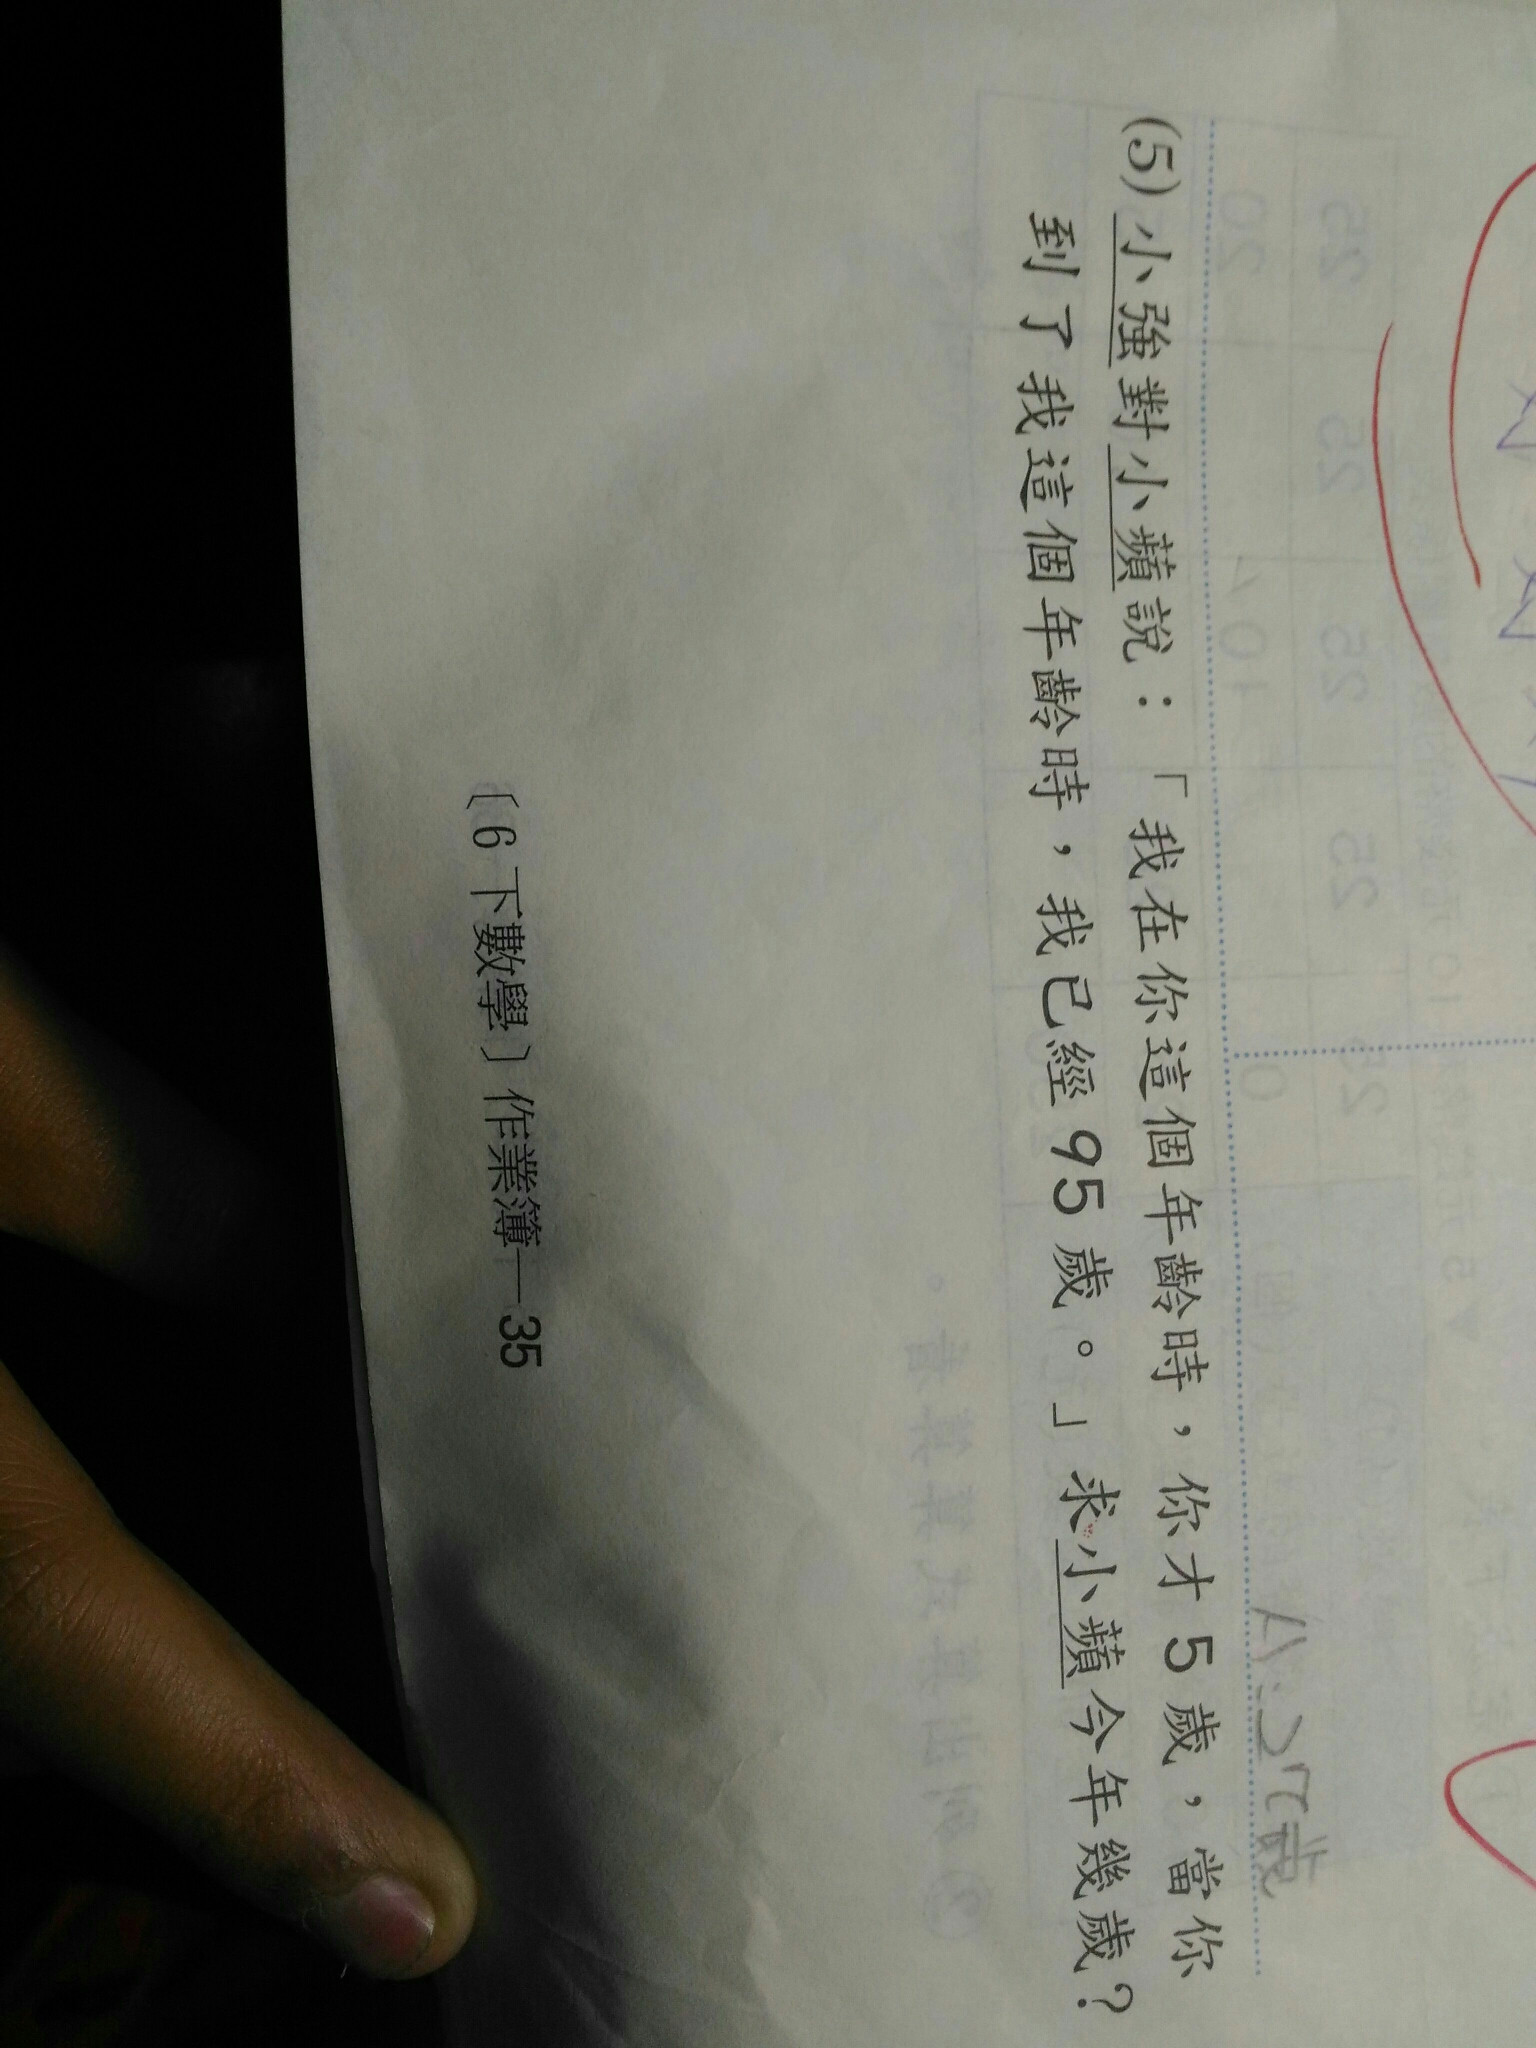 (5)小強對小蘋說：「我在你這個年齡時，你才5歲，當你
到了我這個年齡時，我已經95歲。」求小蘋今年幾歲？
〔6下數學〕作業簿—35